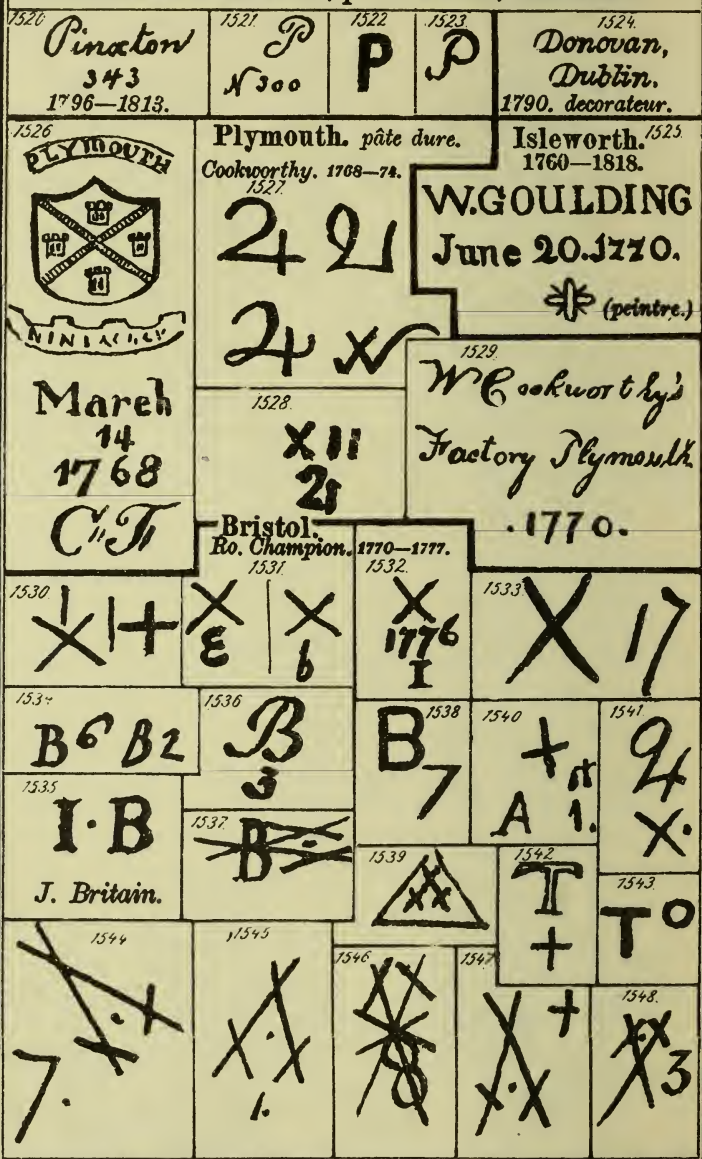 1520
Pinxton
343
1796—1813.
1521.
P
N 300
1522
P
1523.
P
1524.
Donovan,
Dublin.
1790. decorateur.
1526
PLYMOUTH
March
14
1768
C F
Plymouth. pâte dure.
Cookworthy. 1768—74.
1527
Isleworth. 1525.
1760—1818.
W.GOULDING
June 20.1770.
(peintre.)
1528.
X II
1529.
W Cookworthy's
Factory Plymouth
.1770.
Bristol.
Ro. Champion. 1770—1777.
1530
1531.
X X
ε b
1532.
X
1776
I
1533
X 17
1534
B 6 B 2
1535
I · B
J. Britain.
1536
B
3
1537
B
1538
B
7
1539
1540
+ st
A 1.
1541
4
X.
1542
T
+
1543
T O
1544
7.
1545
1.
1546
8
1547
+
1548.
3